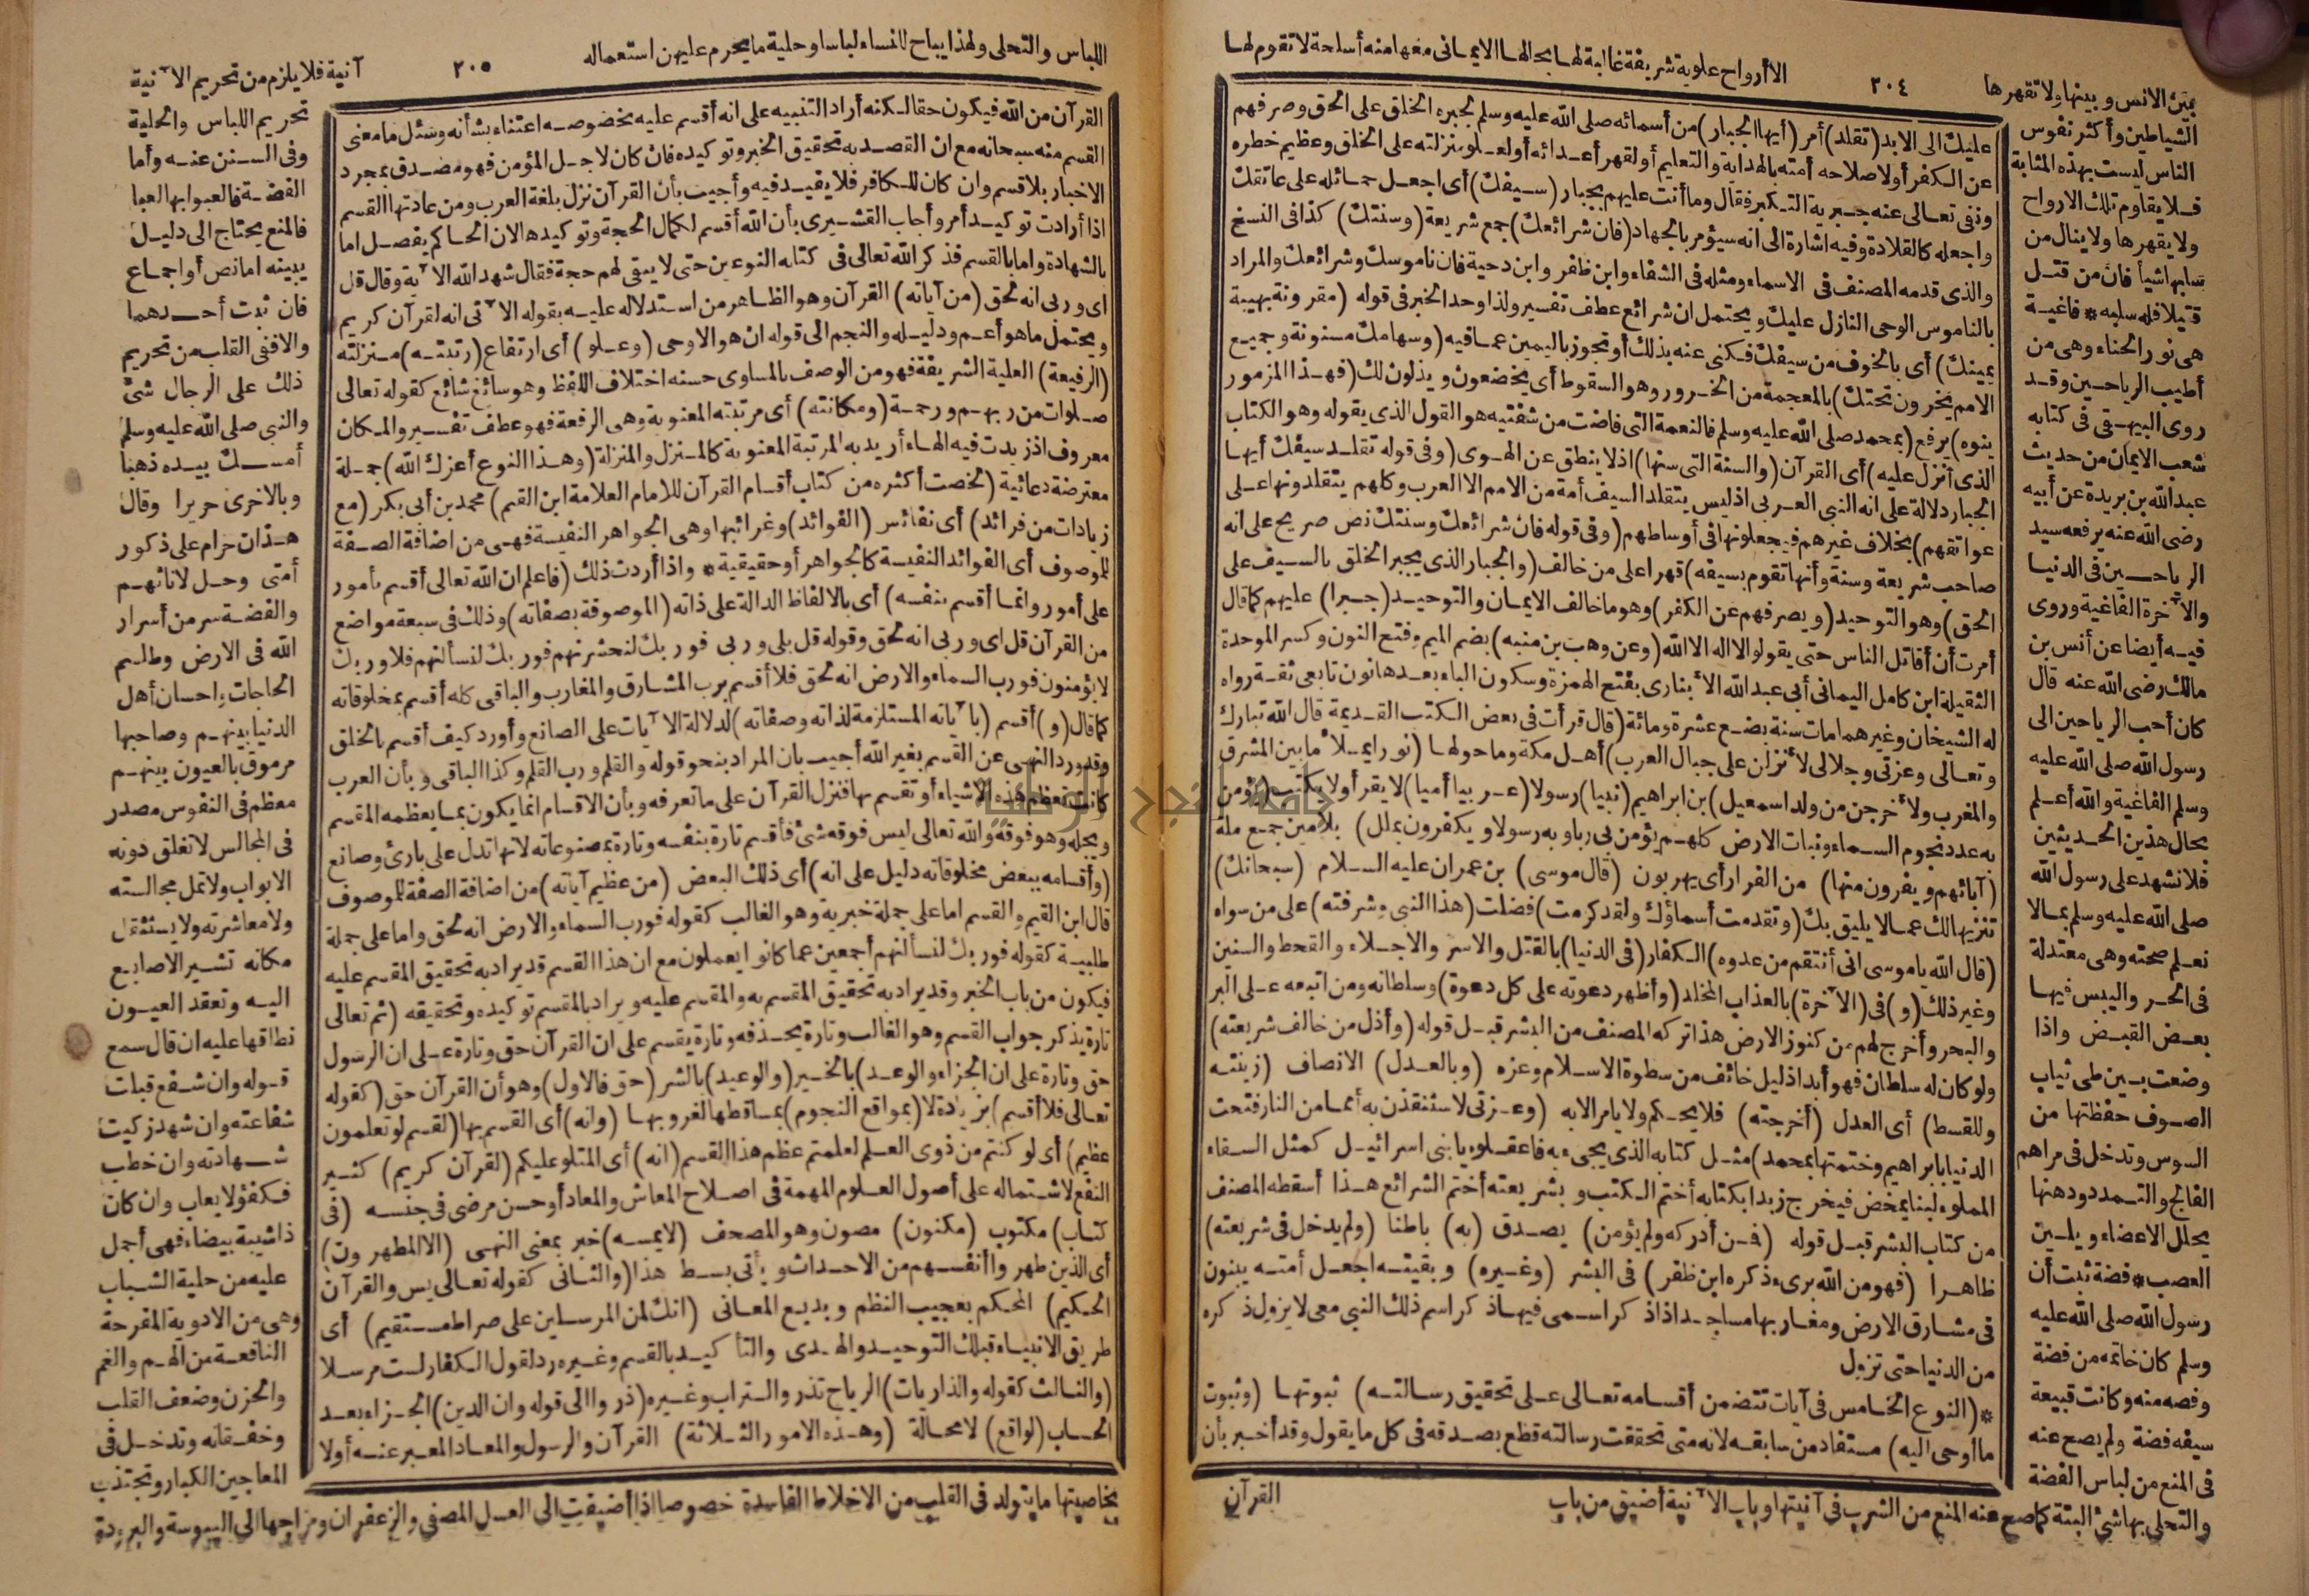 الا أرواح علوية شريفة غالبة لها بحالها الايمانى معها منه أسلحة لا تقوم لها
٢٠٤
بين الانس وبينها ولا تقهرها
الشياطين وأكثر نفوس
الناس ليست بهذه المثابة
فلا يقاوم تلك الارواح
ولا يقهرها ولا ينال من
سلبها شيأ فان من قتل
قتيلا فله سلبه * فاغية
هى نور الحناء وهى من
أطيب الرياحين وقد
روى البيهقى فى كتابه
شعب الايمان من حديث
عبد الله بن بريدة عن أبيه
رضى الله عنه يرفعه سيد
الرياحين فى الدنيا
والآخرة الفاغية وروى
فيه أيضا عن أنس بن
مالك رضى الله عنه قال
كان أحب الرياحين الى
رسول الله صلى الله عليه
وسلم الفاغية والله أعلم
بحال هذين الحديثين
فلا نشهد على رسول الله
صلى الله عليه وسلم بمالا
نعلم صحته وهى معتدلة
فى الحر واليبس فيها
بعض القبض واذا
وضعت بين طى ثياب
الصوف حفظتها من
السوس وتدخل فى مراهم
الفالج والتمدد ودهنها
يحلل الاعضاء ويلين
العصب * فضة ثبت أن
رسول الله صلى الله عليه
وسلم كان خاتمه من فضة
وفصه منه وكانت قبيعة
سيفه فضة ولم يصح عنه
فى المنع من لباس الفضة
والتحلى بها شئ البتة كما صح عنه المنع من الشرب فى آنيتها وباب الآنية أضيق من باب
عليك الى الابد (تقلد) أمر (أيها الجبار) من أسمائه صلى الله عليه وسلم لجبره الخلق على الحق وصرفهم
عن الكفر أولا صلاحه أمته بالهداية والتعليم أولقهر أعدائه أولعلو منزلته على الخلق وعظيم خطره
ونفى تعالى عنه جبرية التكبر فقال وما أنت عليهم بجبار (سيفك) أى اجعل حمائله على عاتقك
واجعله كالقلادة وفيه اشارة الى انه سيؤمر بالجهاد (فان شرائعك) جمع شريعة (وسنتك) كذا فى النسخ
والذى قدمه المصنف فى الاسماء ومثله فى الشفاء وابن ظفر وابن دحية فان ناموسك وشرائعك والمراد
بالناموس الوحى النازل عليك ويحتمل ان شرائع عطف تفسير ولذا وحد الخبر فى قوله (مقرونة بهيبة
يمينك) أى بالخوف من سيفك فكنى عنه بذلك أو تجوز باليمين عما فيه (وسهامك مسنونة وجميع
الامم يخرون تحتك) بالمعجمة من الخرور وهو السقوط أى يخضعون ويذلون لك (فهذا المزمور
ينوه) يرفع (بمحمد صلى الله عليه وسلم فالنعمة التى فاضت من شفتيه هو القول الذى يقوله وهو الكتاب
الذى أنزل عليه) أى القرآن (والسنة التى سنها) اذ لا ينطق عن الهوى (وفى قوله تقلد سيفك أيها
الجبار دلالة على انه النبى العربى اذ ليس يتقلد السيف أمة من الامم الا العرب وكلهم يتقلدونها على
عواتقهم) بخلاف غيرهم فيجعلونها فى أوساطهم (وفى قوله فان شرائعك وسنتك نص صريح على انه
صاحب شريعة وسنة وأنها تقوم بسيفه) قهرا على من خالف (والجبار الذى يجبر الخلق بالسيف على
الحق) وهو التوحيد (ويصرفهم عن الكفر) وهو ما خالف الايمان والتوحيد (جبرا) عليهم كما قال
أمرت أن أقاتل الناس حتى يقولوا لا اله الا الله (وعن وهب بن منبه) بضم الميم وفتح النون وكسر الموحدة
الثقيلة ابن كامل اليمانى أبى عبد الله الأبنارى بفتح الهمزة وسكون الباء بعدها نون تابعى ثقة رواه
له الشيخان وغيرهما مات سنة بضع عشرة ومائة (قال قرأت فى بعض الكتب القديمة قال الله تبارك
وتعالى وعزتى وجلالى لأنزلن على جبال العرب) أهل مكة وما حولها (نورا يملأ ما بين المشرق
والمغرب ولأخرجن من ولد اسمعيل) بن ابراهيم (نبيا) رسولا (عربيا أميا) لا يقرأ ولا يكتب (يؤمن
به عدد نجوم السماء ونبات الارض كلهم يؤمن بى ربا وبه رسولا ويكفرون بملل) بلامين جمع ملة
(آبائهم ويفرون منها) من الفرار أى يهربون (قال موسى) بن عمران عليه السلام (سبحانك)
تنزيها لك عمالا يليق بك (وتقدست أسماؤك ولقد كرمت) فضلت (هذا النبى وشرفته) على من سواه
(قال الله يا موسى انى أنتقم من عدوه) الكفار (فى الدنيا) بالقتل والاسر والاجلاء والقحط والسنين
وغير ذلك (و) فى (الآخرة) بالعذاب المخلد (وأظهر دعوته على كل دعوة) وسلطانه ومن اتبعه على البر
والبحر وأخرج لهم من كنوز الارض هذا تركه المصنف من البشر قبل قوله (وأذل من خالف شريعته)
ولو كان له سلطان فهو أبدا ذليل خائف من سطوة الاسلام وعزه (وبالعدل) الانصاف (زينته
وللقسط) أى العدل (أخرجته) فلا يحكم ولا يامر الا به (وعزتى لاستنقذن به أمما من النار فتحت
الدنيا بابراهيم وختمتها بمحمد) مثل كتابه الذى يجىء به فاعقلوه يا بنى اسرائيل كمثل السقاء
المملوء لبنا يمخض فيخرج زبدا بكتابه أختم الكتب وبشريعته أختم الشرائع هذا أسقطه المصنف
من كتاب البشر قبل قوله (فمن أدركه ولم يؤمن) يصدق (به) باطنا (ولم يدخل فى شريعته)
ظاهرا (فهو من الله برىء ذكره ابن ظفر) فى البشر (وغيره) وبقيته اجعل أمته يبنون
فى مشارق الارض ومغاربها مساجد اذا ذكر اسمى فيها ذكر اسم ذلك النبى معى لا يزول ذكره
من الدنيا حتى تزول
* (النوع الخامس فى آيات تتضمن أقسامه تعالى على تحقيق رسالته) ثبوتها (وثبوت
ما أوحى اليه) مستفاد من سابقه لانه متى تحققت رسالته قطع بصدقه فى كل ما يقول وقد أخبر بأن
القرآن
اللباس والتحلى ولهذا يباح للنساء لباسا وحلية ما يحرم عليهن استعماله
٢٠٥
آنية فلا يلزم من تحريم الآنية
تحريم اللباس والحلية
وفى السنن عنه وأما
الفضة فالعبوا بها لعبا
فالمنع يحتاج الى دليل
يبينه اما نص أو اجماع
فان ثبت أحدهما
والا ففى القلب من تحريم
ذلك على الرجال شئ
والنبى صلى الله عليه وسلم
أمسك بيده ذهبا
وبالاخرى حريرا وقال
هذان حرام على ذكور
أمتى وحل لاناثهم
والفضة سر من أسرار
الله فى الارض وطلسم
الحاجات واحسان أهل
الدنيا بينهم وصاحبها
مرموق بالعيون بينهم
معظم فى النفوس مصدر
فى المجالس لا تغلق دونه
الابواب ولا تمل مجالسته
ولا معاشرته ولا يستثقل
مكانه تشير الاصابع
اليه وتعقد العيون
نطاقها عليه ان قال سمع
قوله وان شفع قبلت
شفاعته وان شهد زكيت
شهادته وان خطب
فكفؤ لا يعاب وان كان
ذا شيبة بيضاء فهى أجمل
عليه من حلية الشباب
وهى من الادوية المفرحة
النافعة من الهم والغم
والحزن وضعف القلب
وخفقانه وتدخل فى
المعاجين الكبار وتجتذب
بخاصيتها ما يتولد فى القلب من الاخلاط الفاسدة خصوصا اذا أضيفت الى العسل المصفى والزعفران ومزاجها الى اليبوسة والبرودة
القرآن من الله فيكون حقا لكنه أراد التنبيه على انه أقسم عليه بخصوصه اعتناء بشأنه وسئل ما معنى
القسم منه سبحانه مع ان القصد به تحقيق الخبر وتوكيده فان كان لاجل المؤمن فهو مصدق بمجرد
الاخبار بلا قسم وان كان للكافر فلا يفيد فيه وأجيب بأن القرآن نزل بلغة العرب ومن عادتها القسم
اذا أرادت توكيد أمر وأجاب القشيرى بأن الله أقسم لكمال الحجة وتوكيدها لان الحاكم يفصل اما
بالشهادة واما بالقسم فذكر الله تعالى فى كتابه النوعين حتى لا يبقى لهم حجة فقال شهد الله الآية وقال قل
اى وربى انه لحق (من آياته) القرآن وهو الظاهر من استدلاله عليه بقوله الآتى انه لقرآن كريم
ويحتمل ما هو أعم ودليله والنجم الى قوله ان هو الا وحى (وعلو) أى ارتفاع (رتبته) منزلته
(الرفيعة) العلية الشريفة فهو من الوصف بالمساوى حسنه اختلاف اللفظ وهو سائغ شائع كقوله تعالى
صلوات من ربهم ورحمة (ومكانته) أى مرتبته المعنوية وهى الرفعة فهو عطف تفسير والمكان
معروف اذ زيدت فيه الهاء أريد به المرتبة المعنوية كالمنزل والمنزلة (وهذا النوع أعزك الله) جملة
معترضة دعائية (لخصت أكثره من كتاب أقسام القرآن للامام العلامة ابن القيم) محمد بن أبى بكر (مع
زيادات من فرائد) أى نفائس (الفوائد) وغرائبها وهى الجواهر النفيسة فهى من اضافة الصفة
للموصوف أى الفوائد النفيسة كالجواهر أو حقيقية * واذا أردت ذلك (فاعلم ان الله تعالى أقسم بأمور
على أمور وانما أقسم بنفسه) أى بالالفاظ الدالة على ذاته (الموصوفة بصفاته) وذلك فى سبعة مواضع
من القرآن قل اى وربى انه لحق وقوله قل بلى وربى فوربك لنحشرنهم فوربك لنسألنهم فلا وربك
لا يؤمنون فورب السماء والارض انه لحق فلا أقسم برب المشارق والمغارب والباقى كله أقسم بمخلوقاته
كما قال (و) أقسم (بآياته المستلزمة لذاته وصفاته) لدلالة الآيات على الصانع وأورد كيف أقسم بالخلق
وقد ورد النهى عن القسم بغير الله أجيب بان المراد بنحو قوله والقلم ورب القلم وكذا الباقى وبأن العرب
كانت تعظم هذه الاشياء أو تقسم بها فنزل القرآن على ما تعرفه وبأن الاقسام انما يكون بما يعظمه المقسم
ويجله وهو فوقه والله تعالى ليس فوقه شئ فأقسم تارة بنفسه وتارة بمصنوعاته لانها تدل على بارئ وصانع
(وأقسامه ببعض مخلوقاته دليل على انه) أى ذلك البعض (من عظيم آياته) من اضافة الصفة للموصوف
قال ابن القيم والقسم اما على جملة خبرية وهو الغالب كقوله فورب السماء والارض انه لحق واما على جملة
طلبية كقوله فوربك لنسألنهم أجمعين عما كانوا يعملون مع ان هذا القسم قد يراد به تحقيق المقسم عليه
فيكون من باب الخبر وقد يراد به تحقيق المقسم به والمقسم عليه ويراد بالمقسم توكيده وتحقيقه (ثم تعالى
تارة يذكر جواب القسم وهو الغالب وتارة يحذفه وتارة يقسم على ان القرآن حق وتارة على ان الرسول
حق وتارة على ان الجزاء والوعد) بالخير (والوعيد) بالشر (حق فالاول) وهو أن القرآن حق (كقوله
تعالى فلا أقسم) بزيادة لا (بمواقع النجوم) بمساقطها لغروبها (وانه) أى القسم بها (لقسم لو تعلمون
عظيم) أى لو كنتم من ذوى العلم لعلمتم عظم هذا القسم (انه) أى المتلو عليكم (لقرآن كريم) كثير
النفع لاشتماله على أصول العلوم المهمة فى اصلاح المعاش والمعاد أو حسن مرضى فى جنسه (فى
كتاب) مكتوب (مكنون) مصون وهو المصحف (لا يمسه) خبر بمعنى النهى (الا المطهرون)
أى الذين طهروا أنفسهم من الاحداث ويأتى بسط هذا (والثانى كقوله تعالى يس والقرآن
الحكيم) المحكم بعجيب النظم وبديع المعانى (انك لمن المرسلين على صراط مستقيم) أى
طريق الانبياء قبلك التوحيد والهدى والتأكيد بالقسم وغيره رد لقول الكفار لست مرسلا
(والثالث كقوله والذاريات) الرياح تذر والتراب وغيره (ذروا الى قوله وان الدين) الجزاء بعد
الحساب (لواقع) لا محالة (وهذه الامور الثلاثة) القرآن والرسول والمعاد المعبر عنه أولا
جامعة النجاح الوطنية